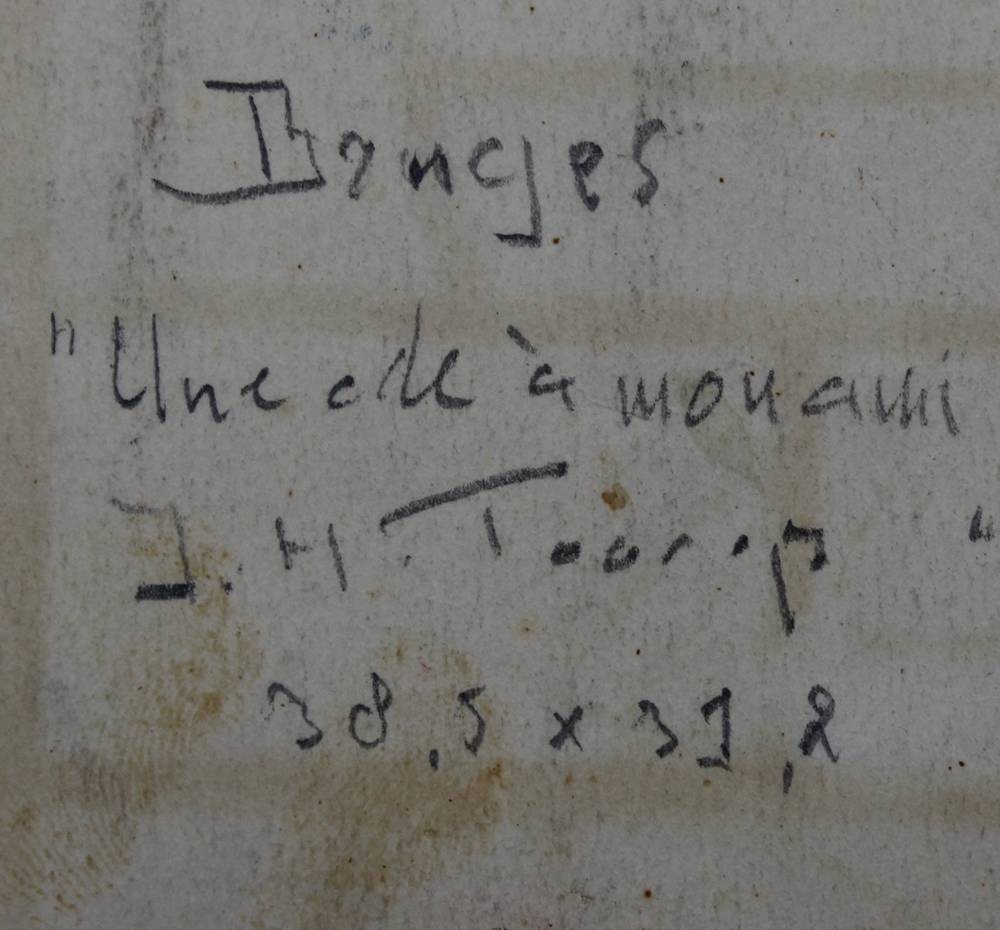 Bruges
"Une ode à mon ami
J. H. Toorop "
38,5 x 31,2